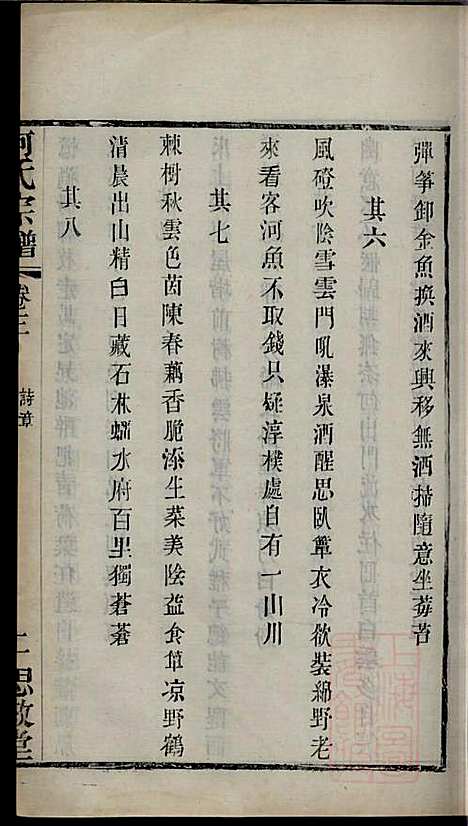 彈箏卸金魚換酒來興移無酒掃隨意坐莓苔
其六
風磴吹陰雪雲門吼瀑泉酒醒思臥簟衣冷欲裝綿野老
來看客河魚不取錢只疑淳樸處自有一山川
其七
棘樹秋雲色茵陳春藕香脆添生菜美陰益食簞凉野鶴
清晨出山精白日藏石林蟠水府百里獨蒼蒼
其八
何氏宗譜
卷三
詩章
思敬堂